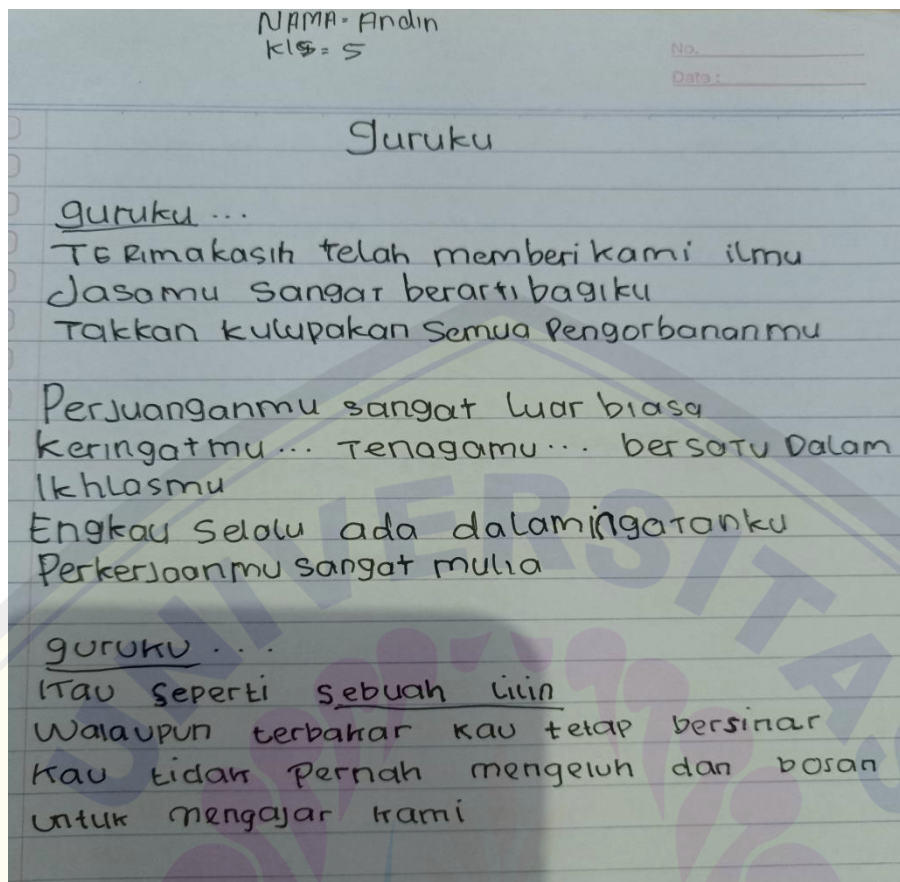 NAMA = Andin
Kls = 5
No.
Date :
guruku
guruku ...
TERimakasih telah memberi kami ilmu
Jasamu sangat berarti bagiku
Takkan kulupakan semua Pengorbananmu
Perjuanganmu sangat luar biasa
keringatmu... Tenagamu... bersatu Dalam
Ikhlasmu
Engkau selalu ada dalamingatanku
Perkerjaanmu sangat mulia
guruku ...
Kau seperti sebuah lilin
Walaupun terbakar kau tetap bersinar
Kau tidak pernah mengeluh dan bosan
untuk mengajar kami
UNIVERSITAS